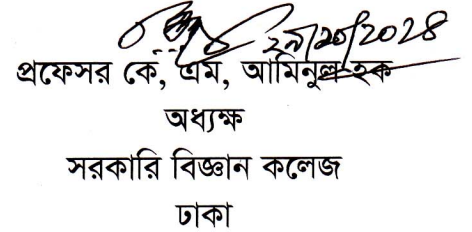 ২৯/১০/২০২৪
প্রফেসর কে, এম, আমিনুল হক
অধ্যক্ষ
সরকারি বিজ্ঞান কলেজ
ঢাকা